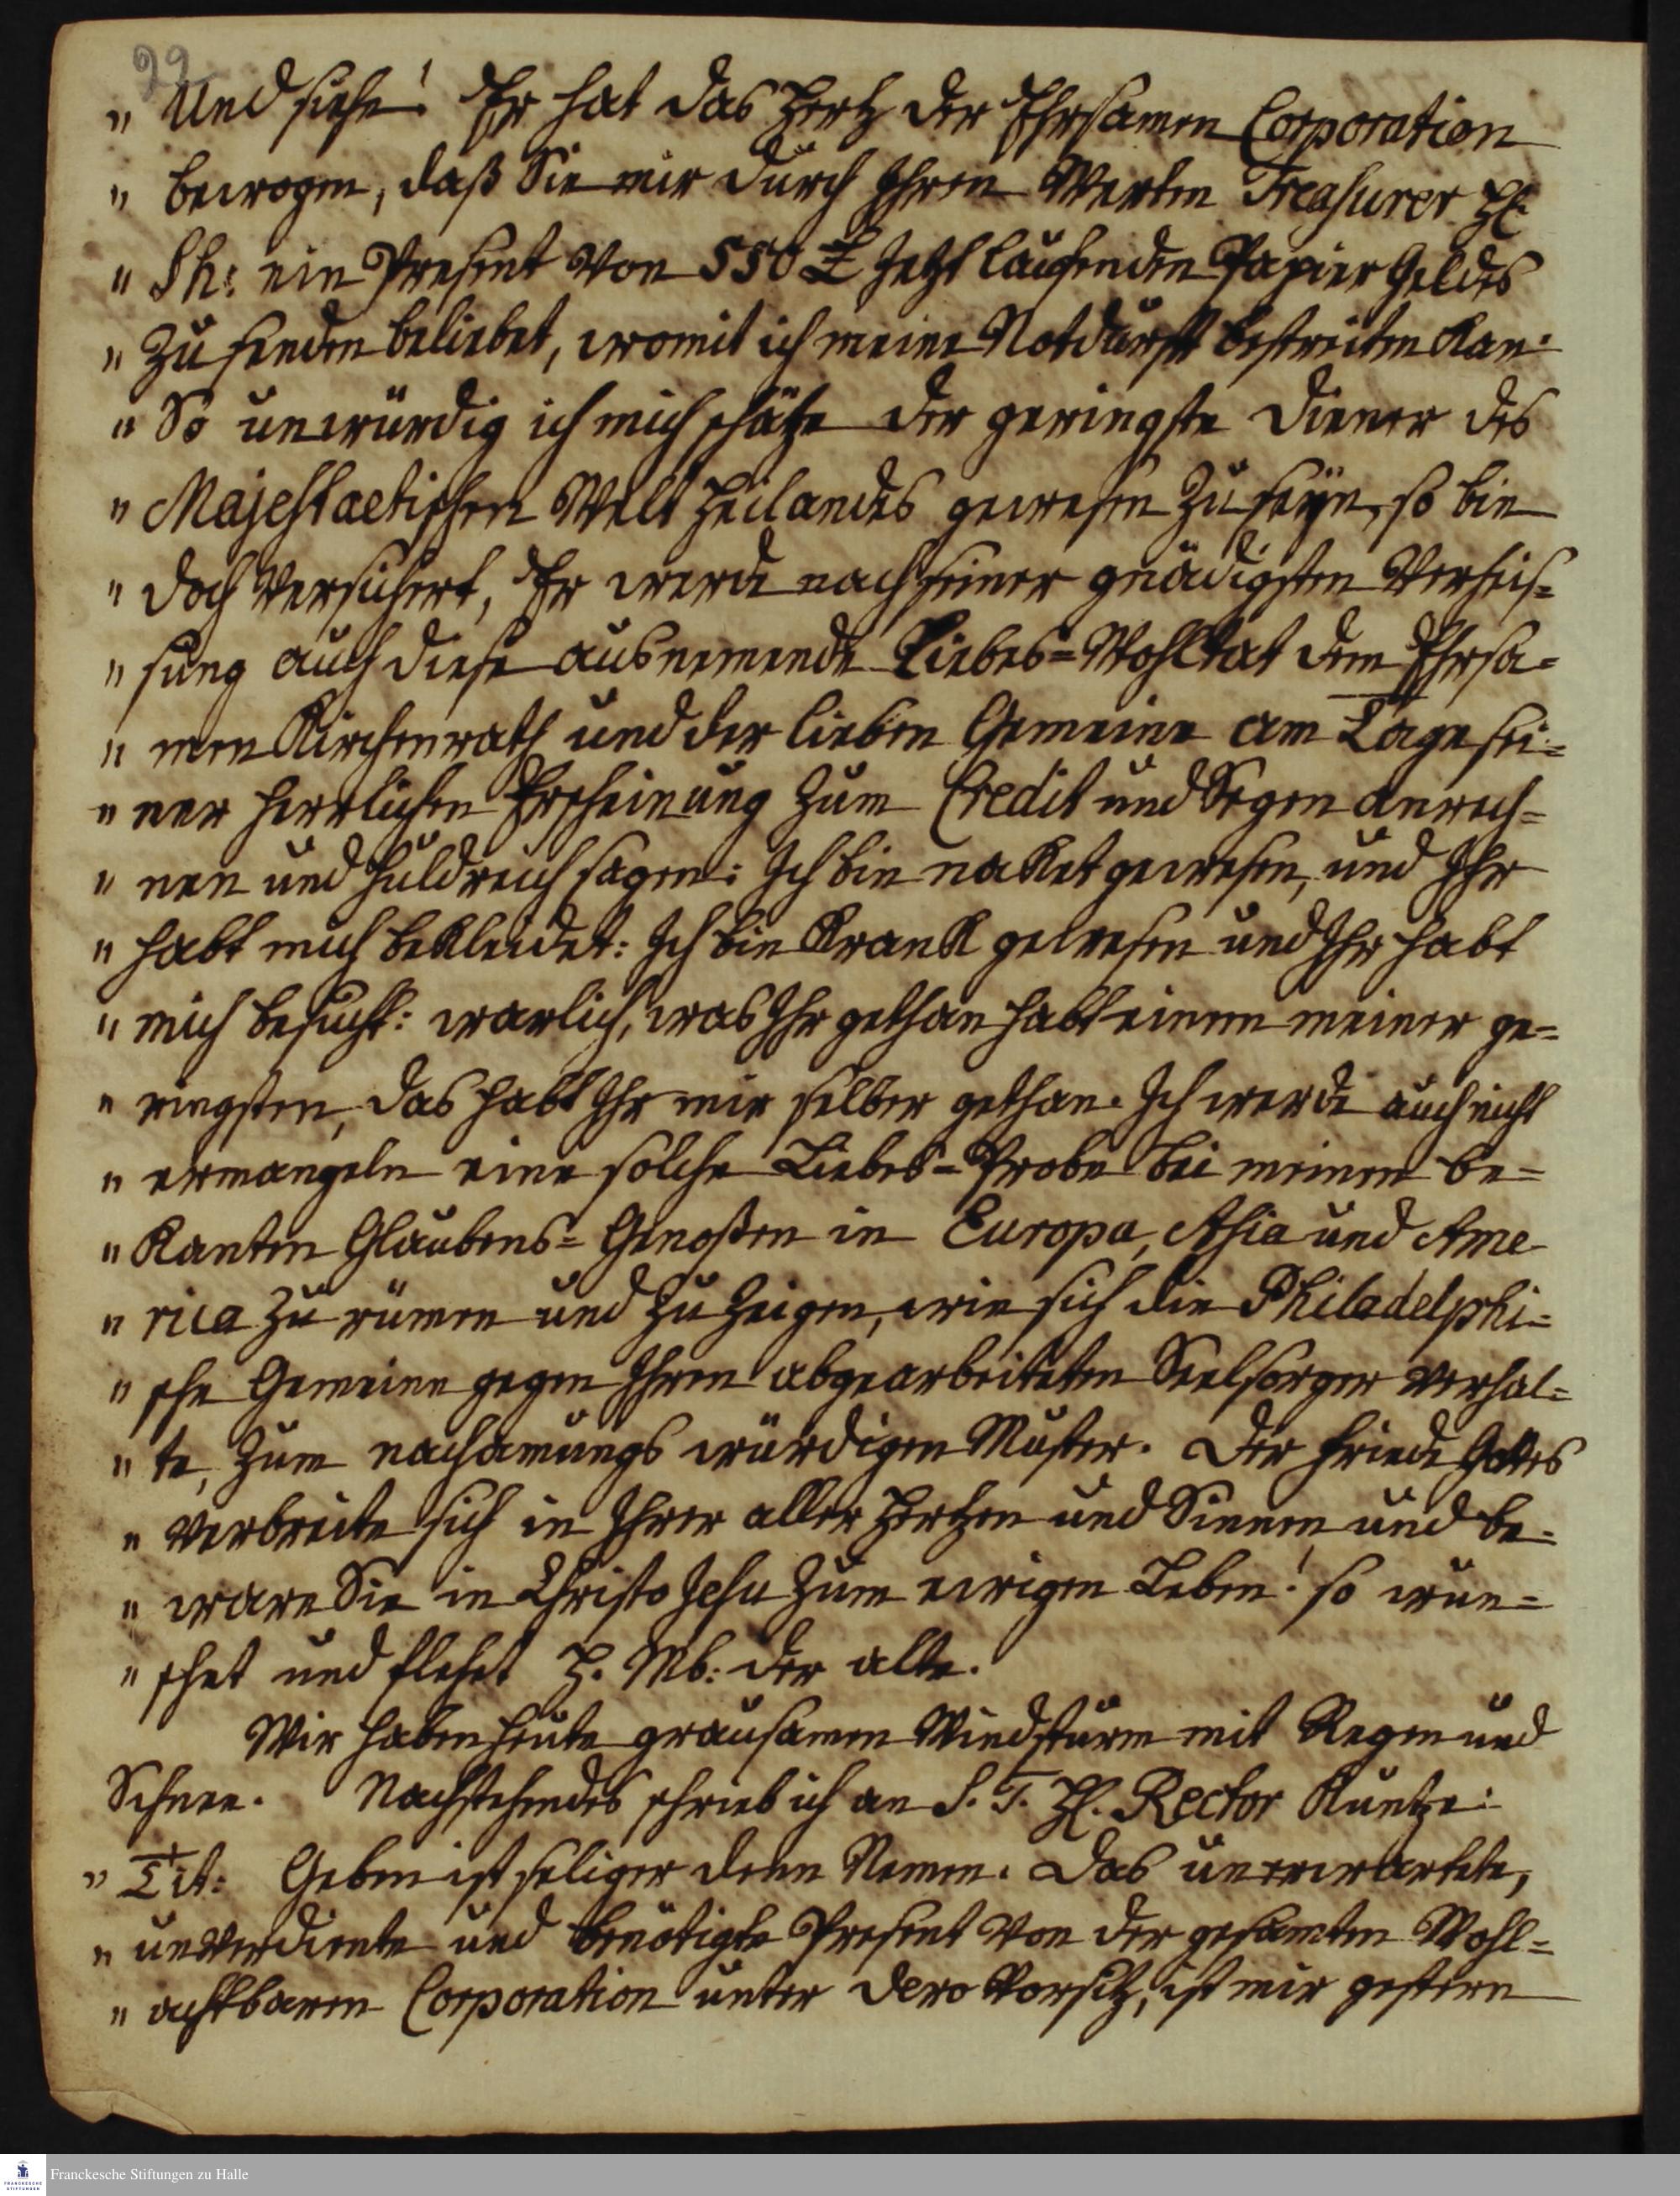 22
" Und siehe! Er hat das Hertz der Ehrsamen Corporation
" bewogen, daß Sie mir durch Ihren Werten Treasurer H.
" Sh: ein Present von 550 £ jetzt laufenden Papier Geldes
" zu senden beliebet, womit ich meine Notdurft bestreiten kan.
" So unwürdig ich mich schätze der geringste Diener des
" Majestaetischen Welt Heilandes gewesen zu seyn, so bin
" doch versichert, Er werde nach seiner gnädigsten Verheis=
" sung auch diese ausnemende Liebes=Wohltat dem Ehrsa=
" men Kirchenrath und der lieben Gemeine am Tage sei=
" ner herrlichen Erscheinung zum Credit und Segen anrech=
" nen und huldreich sagen: Ich bin naket gewesen, und Ihr
" habt mich bekleidet: Ich bin krank gewesen und Ihr habt
" mich besucht: warlich, was Ihr gethan habt einem meiner ge=
" ringsten, das habt Ihr mir selber gethan. Ich werde auch nicht
" ermangeln eine solche Liebes=Probe bei meinen be=
" kanten Glaubens=Genoßen in Europa, Asia und Ame
" rica zu rümen und zu zeigen, wie sich die Philadelphi=
" sche Gemeine gegen Ihren abgearbeiteten Seelsorger verhal=
" te, zum nachamungs würdigen Muster. Der Friede Gottes
" verbreite sich in Ihrer aller Hertzen und Sinnen und be=
" ware Sie in Christo Jesu zum ewigen Leben! so wün=
" schet und flehet H. Mb: der alte.
Wir haben heute grausamen Windsturm mit Regen und
Schnee. Nachstehendes schrieb ich an S. T. H. Rector Kuntze:
" Tit: Geben ist seliger denn Nemen. Das unerwartete,
" unverdiente und benötigte Present von der gesamten Wohl=
" achtbaren Corporation unter dero Vorsitz, ist mir gestern
Franckesche Stiftungen zu Halle
FRANCKESCHE
STIFTUNGEN